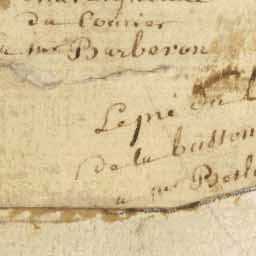 du Courier
a mr Barberon
Le pré du
De la busson
a mr Barb